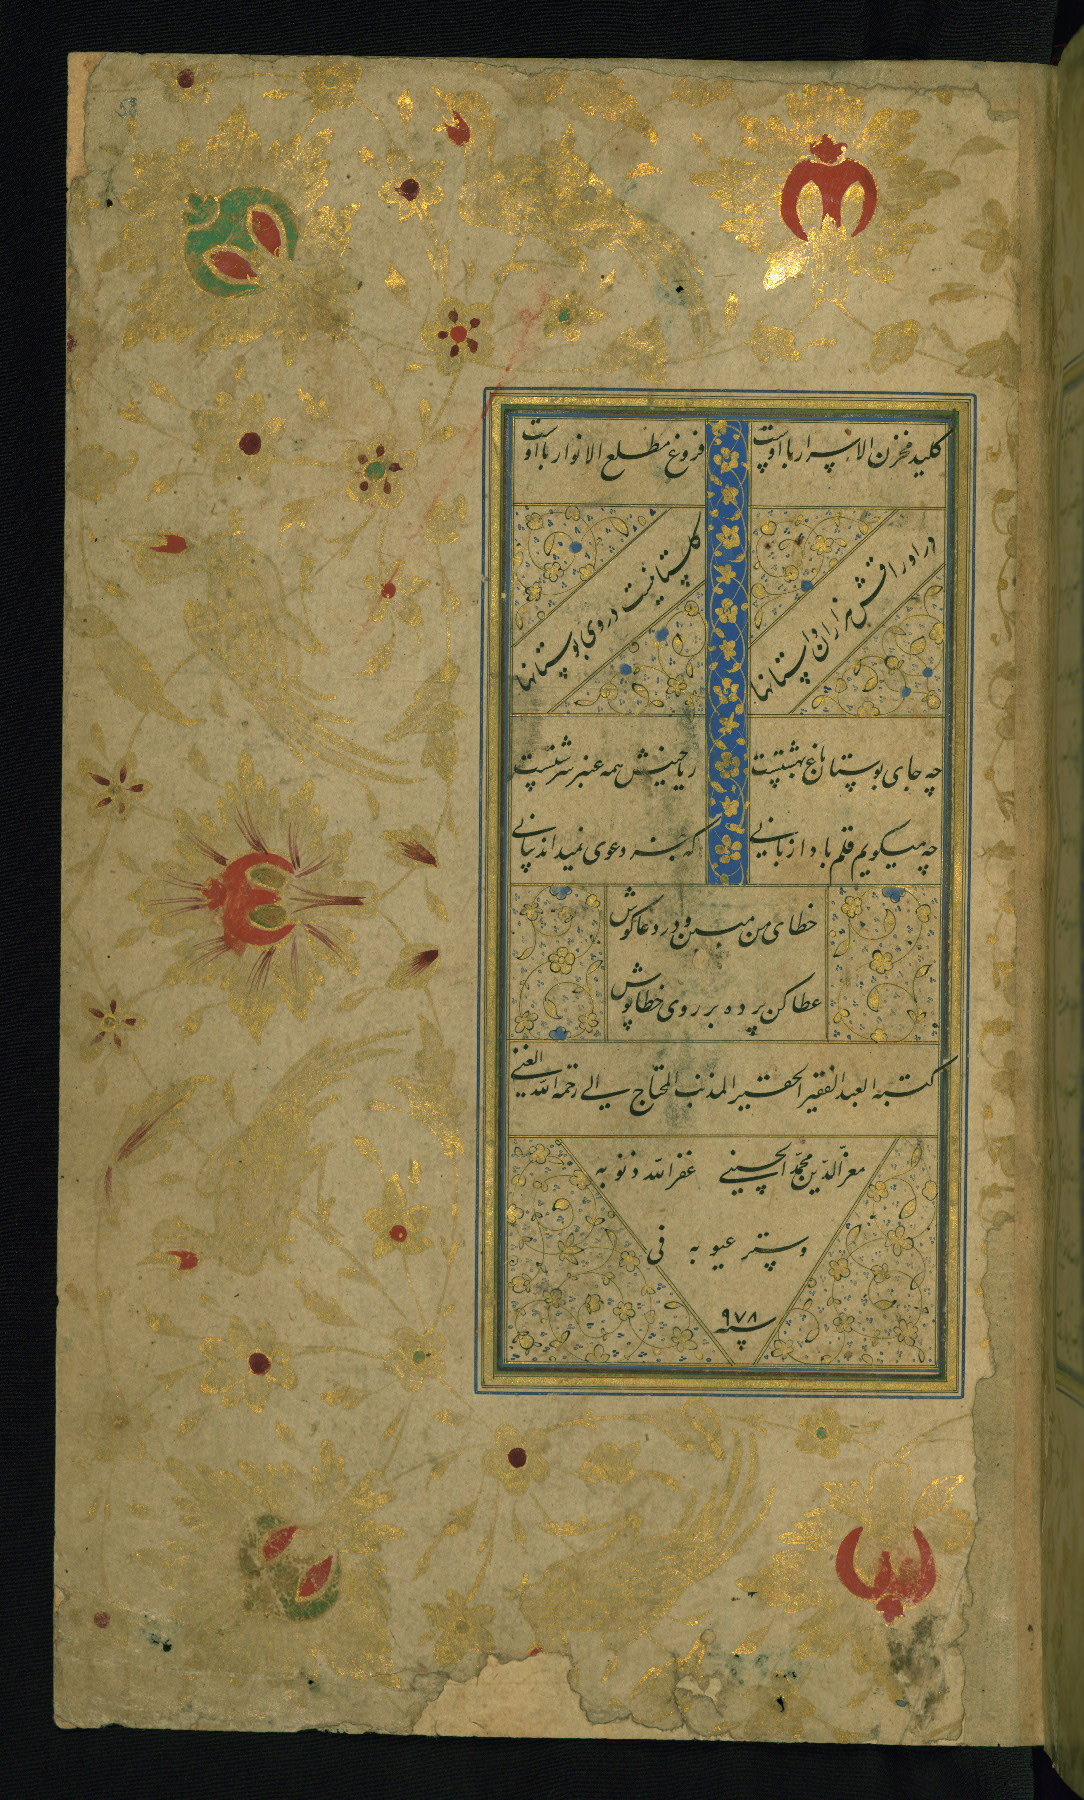 کلید مخزن الاسرار با اوست
فروغ مطلع الانوار با اوست
در اوراقش هزاران داستانها
گلستانیست در وی بوستانها
چه جای بوستان باغ بهشتست
ریاحینش همه عنبر سرشتست
چه میکویم قلم بادا زبانی
که جز دعوی نمیداند بیانی
خطای من مبین و در دعا کوش
عطا کن پرده بر روی خطا پوش
کتبه العبد الفقیر الحقیر المذنب المحتاج الی رحمة الله الغنی
معزالدین محمد الحسینی غفر الله ذنوبه
وستر عیوبه فی
سنه ۹۷۸